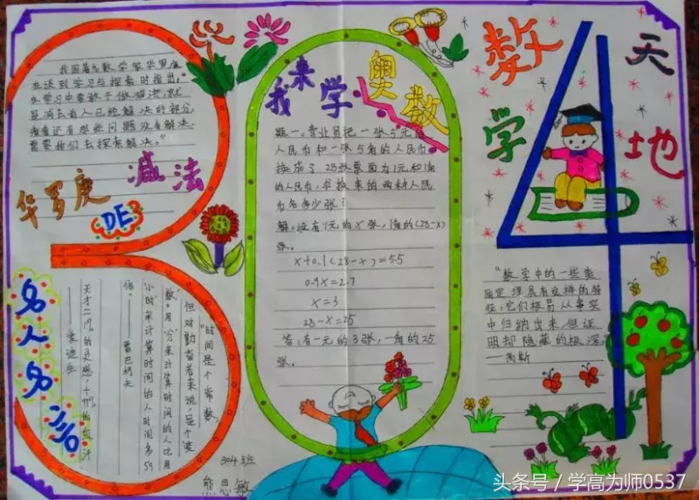 我国著名数学家华罗庚
在谈到学习与探索时指出:"
在学习中要敢于做减法,就
是减去前人已经解决的部分,
看看还有那些问题没有解决,
需要我们去探索解决。"
华罗庚
DE
减法
我来学奥数
题一。营业员把一张5元的
人民币和一张5角的人民币
换成了28张票面为1元和1角
的人民币,求换来的两种人民
币各多少张?
解:设有1元的x张,1角的(28-x)
张。
x+0.1(28-x)=5.5
0.9x=2.7
x=3
28-x=25
答:有一元的3张,一角的25
张。
数学天地
"数学中的一些美
丽定理具有这样的特
性:它们极易从事实
中归纳出来,但证
明却隐藏的极深。"
——高斯
名人名言
"时间是个常数,
但对勤奋者来说,是个'变
数'。用'分'来计算时间的人比用
'小时'来计算时间的人时间多59
倍。"
——雷巴柯夫
天才=1%的灵感+99%的血汗
——爱迪生
304班
熊思敏
头条号/学高为师0537